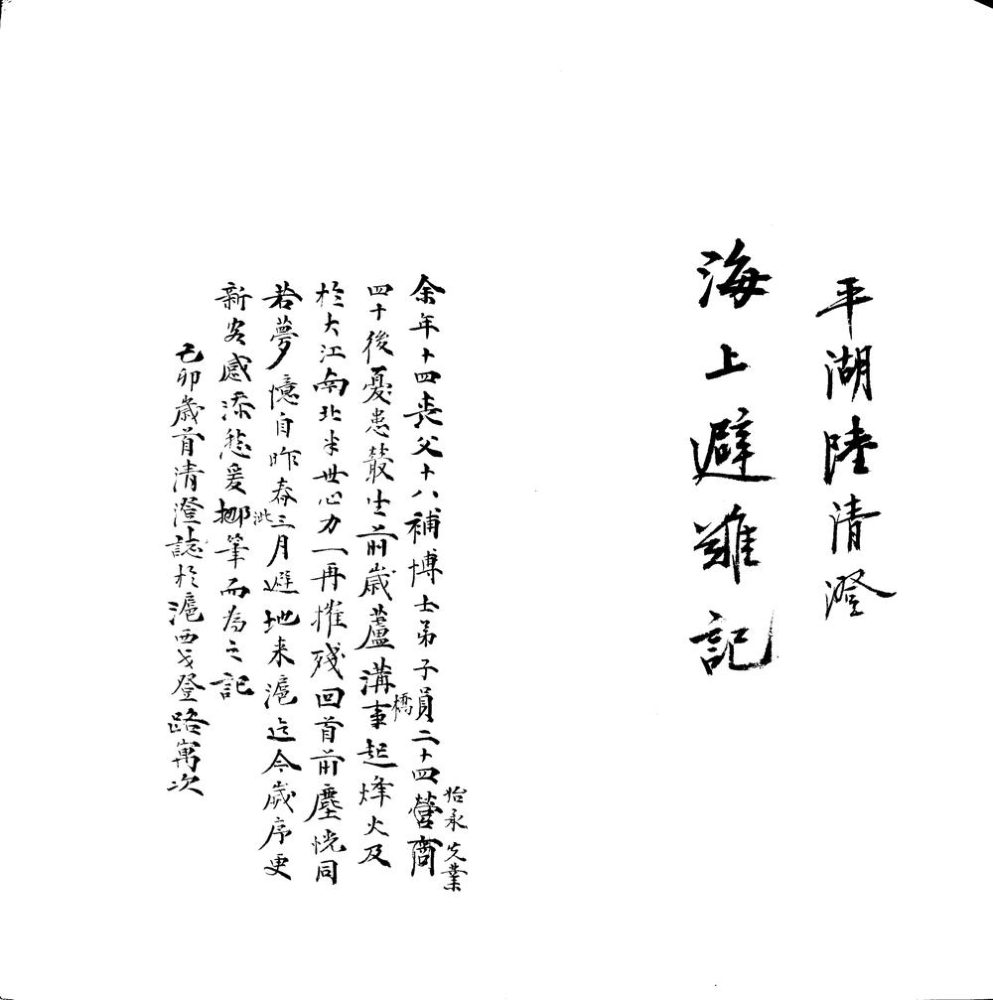 平湖陸清澄
海上避難記
恪承先業
余年十四喪父十八補博士弟子員二十四營商
四十後憂患叢生前歲蘆溝橋事起烽火及
於大江南北半世心力一再摧殘回首前塵恍同
若夢憶自昨春三月避地来滬迄今歲序更
泚
新客感添愁爰挪筆而為之記
己卯歲首清澄誌於滬西戈登路寓次